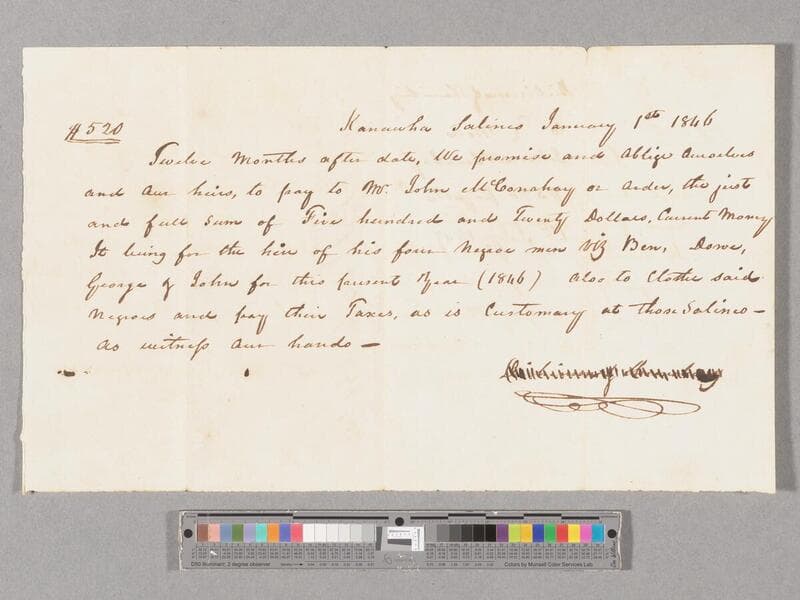 $520
Kanawha Salines January 1st 1846
Twelve Months after date, We promise and Oblige Ourselves
and Our heirs, to pay to Mr. John McConahay or order, the just
and full Sum of Five hundred and Twenty Dollars, Current Money
It being for the hire of his four Negroe men viz Ben, Dowe,
George & John for this present Year (1846) also to Clothe said
Negroes and pay their Taxes, as is Customary at those Salines —
as witness Our hands —
D50 Illuminant, 2 degree observer
Density
Colors by Munsell Color Services Lab